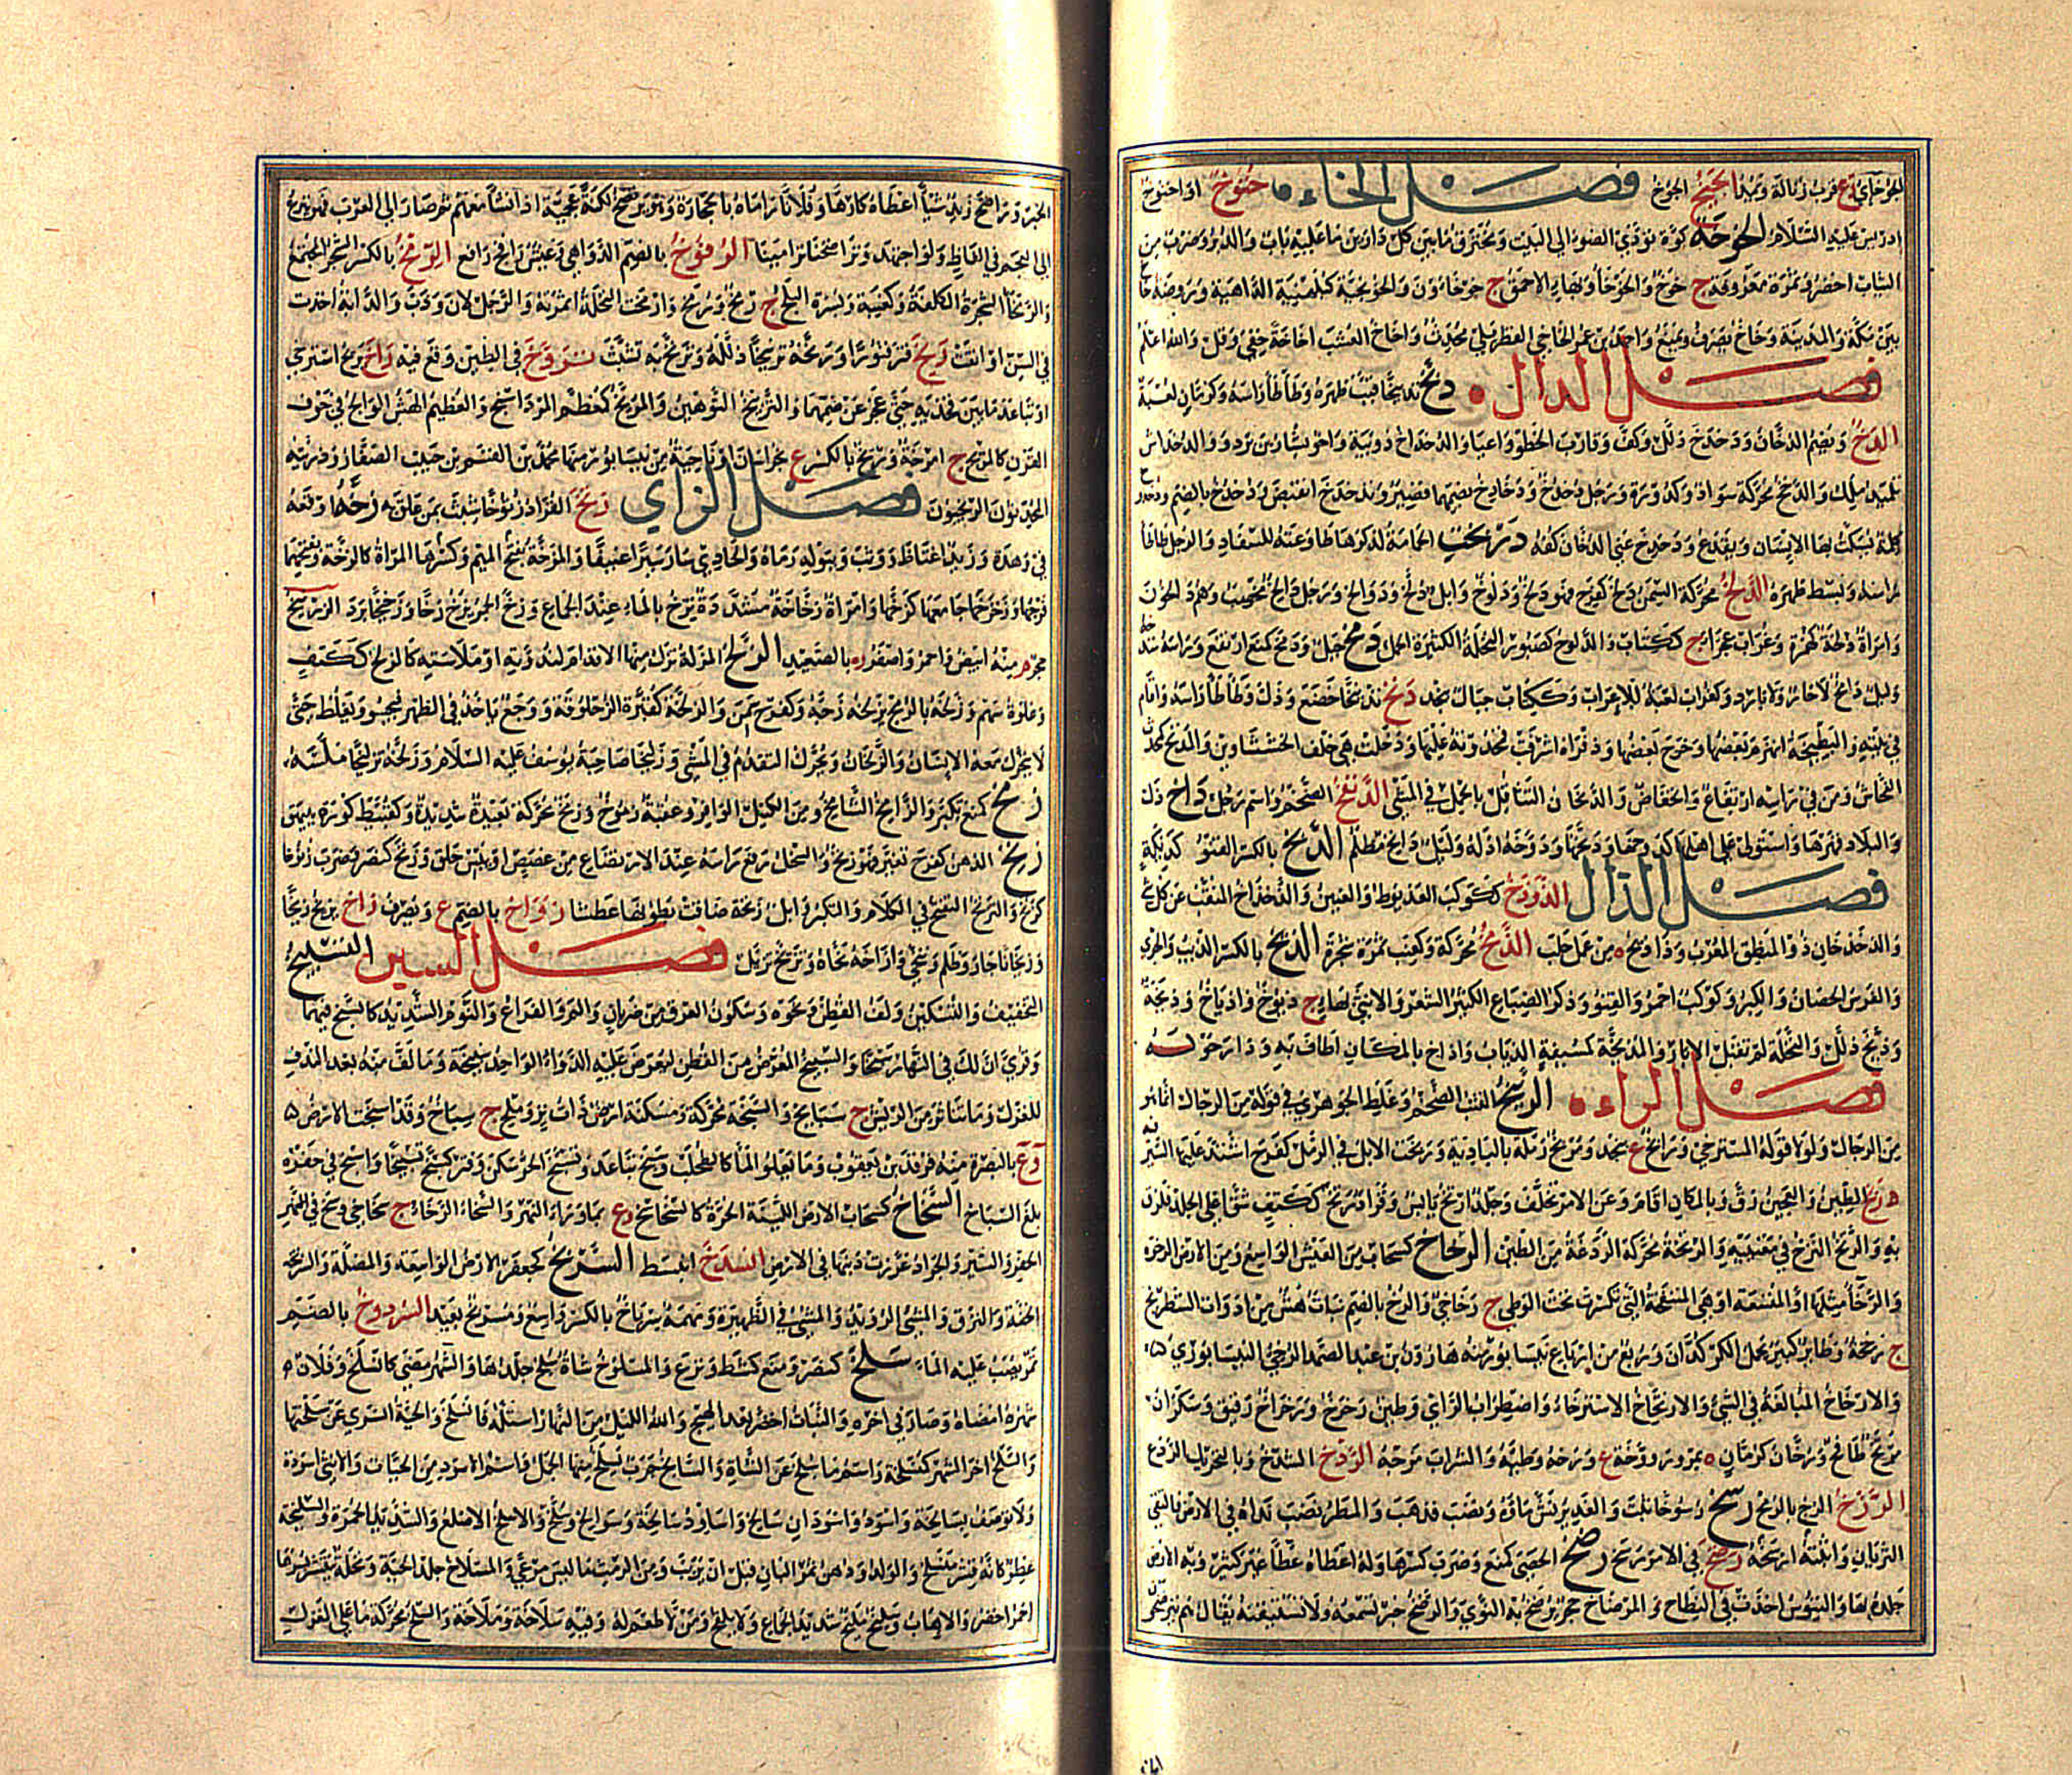 فصل الخاء خنوخ او اخنوخ
ادريس عليه السلام الخوخة كوة تؤدي الضوء الى البيت ومخترق ما بين كل دارين ما عليه باب والدبر وضرب من
الثياب اخضر وثمرة معروفة ج خوخ والخوخاء وبهاء الاحمق ج خوخاؤن والخويخية كبلهنية الداهية وروضة خاخ
بين مكة والمدينة وخاخ يصرف ويمنع واحمد بن عمر الخاخي القطربلي محدث واخاخ العشب اخاخة خفي وقل والله اعلم
فصل الدال دبخ تدبيخا قبب ظهره وطأطأ رأسه وكرمان لعبة
الدخ ويضم الدخان ودخدخ ذلل وكف وقارب الخطو واعيا والدخداخ دويبة واخو بشار بن برد ودالدخداش
تلميذ لملك والدخخ محركة سواد وكدورة ورجل دخدخ ودخادخ بضمهما قصير وتدخدخ انقبض ودخدخ بالضم
كلمة يسكت بها الانسان ويقدع ودخدخ عني الدخان كفه دربخت الحمامة لذكرها طاوعته للسفاد والرجل طأطأ
رأسه وبسط ظهره الدلخ محركة السمن دلخ كفرح فهو دلخ ودلوخ وابل دلخ ودوالخ ورجل دالخ مخصب وهم دالخون
وامرأة دلخة كهمزة وغراب عجزاء ج ككتاب والدلوخ كصبور النخلة الكثيرة الحمل دمخ جبل ودمخ كمنع ارتفع ورأسه شدخه
وليل دامخ لا حار ولا بارد وكغراب لعبة للاعراب وككتاب جبال بنجد دنخ تدنيخا خضع وذل وطأطأ رأسه واقام
في بيته والبطيخة انهزم بعضها وخرج بعضها وذفراه اشرفت قمحدوته عليها ودخلت هي خلف الخششاوين والمدنخ كمحدث
الفحاش ومن في رأسه ارتفاع وانخفاض والدنخان التثاقل بالحمل في المشي الدنفخ الضخم واسم رجل داخ ذل
والبلاد قهرها واستولى على اهلها كدوخها وديخها ودوخه اذله وليل دائخ مظلم الديخ بالكسر القنو كديكة
فصل الذال الذوذخ ككوكب العذيوط والعنين والذخذاخ المنقب عن كل شيء
والذخذخان ذو المنطق المعرب وذاذيخ ه من عمل حلب الذمخ محركة وكعنب ثمرة شجرة الذيخ بالكسر الذئب والجريء
والفرس الحصان والكبر وكوكب احمر والقنو وذكر الضباع الكثير الشعر والانثى بهاء ج ذيوخ واذياخ وذيخة
وذيخ ذلل والنخلة لم تقبل الابار والمذيخة كمسبعة الذباب واذاخ بالمكان اطاف به ودار حوله
فصل الراء الربيخ القتب الضخم وغلط الجوهري في قوله من الرجال انما هو
من الرحال ولولا قوله المسترخي ورابخ ع بنجد ومربخ رملة بالبادية وربخت الابل في الرمل كفرح اشتد عليها السير
رتخ الطين والعجين رق وبالمكان اقام وعن الامر تخلف وجلد ارتخ يابس وقراد رتخ ككتف شق اعلى الجلد فلزق
به والرتخ الرزخ في مغنييه والرتخة محركة الردغة من الطين الرخاخ كسحاب من العيش الواسع ومن الارض الرخوة
والرخاء مثلها او المتسعة او هي المنتفخة التي تكسرت تحت الوطي ج رخاخي والرخ بالضم نبات هش من ادوات الشطرنج
ج رخخة وطائر كبير يحمل الكركدن وربع من ارباع نيسابور منه هارون بن عبد الصمد الرخي النيسابوري
والارخاخ المبالغة في الشيء والارتخاخ الاسترخاء واضطراب الرأي وطين رخرخ ورخراخ رقيق وسكران
مرتخ طافح ورخان كرمان ه بمرو وروخة ع ورخه وطئه والشراب مزجه الردخ الشدخ وبالتحريك الردغ
الرزخ الزج بالرمح رسخ رسوخا ثبت والغدير نش ماؤه ونضب فذهب والمطر نضب نداه في الارض فالتقى
الثريان واثبته ارسخه رصخ في الامر رسخ رضخ الحصى كمنع وضرب كسرها وله اعطاه عطاء غير كثير وبه الارض
جلده بها والتيوس اخذت في النطاح والمرضاخ حجر يرضخ به النوى والرضخ خبر تسمعه ولا تستيقنه يقال هم يترضخون
الخبر وراضخ زيد شيئا اعطاه كارها وفلانا راماه بالحجارة وهو يرتضخ لكنة عجمية اذا نشأ معهم ثم صار الى العرب فهو ينزع
الى العجم في الفاظ ولو اجتهد وتراضخنا ترامينا الرفوخ بالضم الدواهي وعيش رافخ رافع الرمخ بالكسر الشجر المجتمع
والرمخاء الشجرة الكلفة وكعنبة ولبسرة البلح ج رمخ ورمخ وارمخت النخلة اثمرته والرجل لان وذل والدابة اخذت
في السن او انقت رنخ فتر فتورا ورنخه ترنيخا ذلله وترنخ به تشبث تروخ في الطين وقع فيه راخ يريخ استرخى
او تباعد ما بين فخذيه حتى عجز عن ضمهما والتريخ التوهين والمريخ كمعظم المرداسنج والعظيم الهش الوالج في جوف
القرن كالمريخ ج امرخة وريخ بالكسر ع بخراسان او ناحية من نيسابور منها محمد بن القسم بن حبيب الصفار وذريته
المحدثون الريخيون فصل الزاي زنخ القراد زنوخا شبث بمن علق به زخه اوقعه
في وهدة وزيد اغتاظ ووثب وببوله رماه والحادي سار سيرا عنيفا والمزخة بفتح الميم وكسرها المراة كالزخة وبفتحهما
فرجها وزخزخها جامعها كزخها وامراة زخاخة مستندة يزخ بالماء عند الجماع وزخ الجمر يزخ زخا وزخيخا برد الزرنيخ
حجر م منه ابيض واحمر واصفر زه بالصعيد الزلخ المزلة تزل منها الاقدام لنداوته او ملاسته كالزلخ ككتف
وغلوة سهم وزلخه بالرمح يزلخه زجه وكفرح سمن والزلخة كقبرة الزحلوقة ووجع ياخذ في الظهر فيجسو ويغلظ حتى
لا يتحرك معه الانسان والزلخان ويحرك التقدم في المشي وزليخا صاحبة يوسف عليه السلام وزلخه تزليخا ملسه
زمخ كمنع تكبر والزامخ الشامخ ومن الكيل الوافر وعقبة زموخ وزمخ محركة بعيدة شديدة وكقبيط كورة ببيهق
زنخ الدهن كفرح تغير فهو زنخ والسخل رفع رأسه عند الارتضاع من غصص او يبس حلق وزنخ كنصر وضرب زنوخا
كزنخ والتزنخ التفتح في الكلام والتكبر وابل زنخة ضاقت بطونها عطشا زواخ بالضم ع ويصرف زاخ يزيخ زيخا
وزيخانا جار وظلم وتنحى وازاخه نحاه وتزيخ تزيل فصل السين التسبيخ
التخفيف والتسكين ولف القطن ونحوه وسكون العرق من ضربان والم والفراغ والنوم الشديد كالسبخ فيهما
وقري ان لك في النهار سبخا والسبيخ المعرض من القطن ليوضع عليه الدواء الواحد سبيخة وما لف منه بعد الندف
للغزل وما تناثر من الريش ج سبائخ والسبخة محركة ومسكنة ارض ذات نز وملح ج سباخ وقد اسبخت الارض
وع بالبصرة منه فرقد بن يعقوب وما يعلو الماء كالطحلب وسبخ تباعد وتسبخ الحر سكن وفتر كسبخ تسبيخا واسبخ في حفره
بلغ السباخ السخاخ كسحاب الارض اللينة الحرة كالسخاخ وع بما وراء النهر والسخاء الرخاء ج سخاخي وسخ في
الحفر والسير والجراد غرزت ذنبها في الارض انسدخ انبسط السربخ كجعفر الارض الواسعة والمضلة والسربخة
الخفة والنزق والمشي الرويد والمشي في الظهيرة ومهمه سرباخ بالكسر واسع ومسربخ بعيد السردوخ بالضم
تمر يصب عليه الماء سلخ كنصر ومنع كشط ونزع والمسلوخ شاة سلخ جلدها والشهر مضى كانسلخ وفلان
شهره امضاه وصار في آخره والنبات اخضر بعد الهيج والله الليل من النهار استله فانسلخ والحية انسرى عن سلختها
والسلخ آخر الشهر كمنسلخه واسم ما سلخ عن الشاة والسالخ جرب يسلخ منها الجمل واسم الاسود من الحيات والانثى اسودة
ولا توصف بسالخة واسود واسودان سالخ واساود سالخة وسوالخ وسلخ والاسلخ الاصلع والشديد الحمرة والسليخة
عطر كانه قشر منسلخ والولد ودهن ثمر البان قبل ان يربب ومن الرمث ما ليس مرعى والمسلاخ جلد الحية ونخلة ينتثر بسرها
اخضر والاهاب وسليخ مليخ شديد الجماع ولا يلقح ومن لا طعم له وفيه سلاخة وملاخة والسلخ محركة ما على المغزل